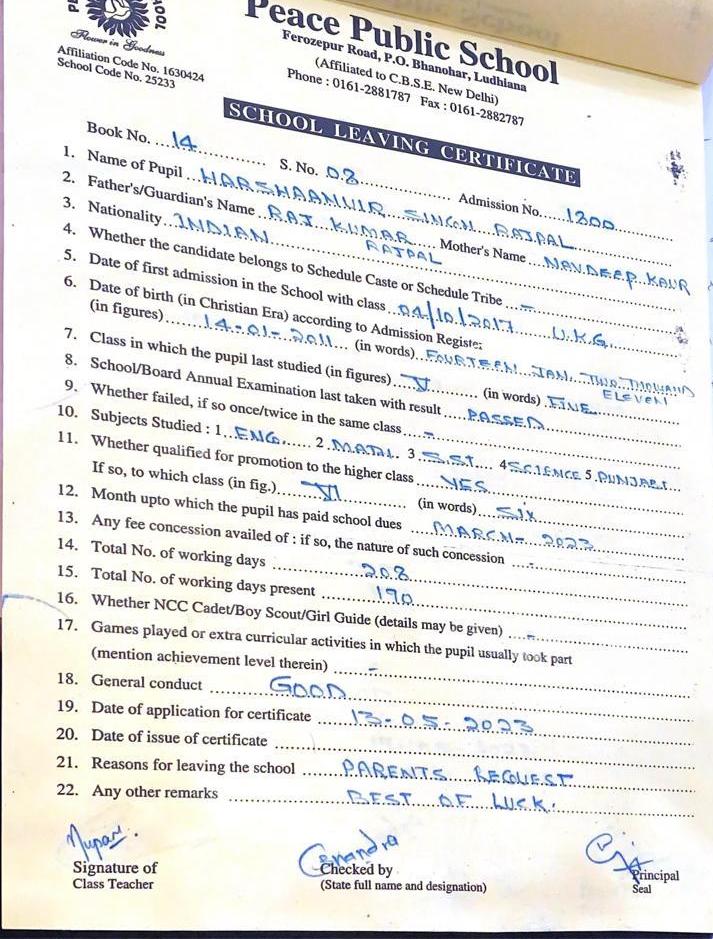 Peace Public School
Flower in Goodness
Ferozepur Road, P.O. Bhanohar, Ludhiana
Affiliation Code No. 1630424
(Affiliated to C.B.S.E. New Delhi)
School Code No. 25233
Phone : 0161-2881787 Fax : 0161-2882787
SCHOOL LEAVING CERTIFICATE
Book No. 14 S. No. 08 Admission No. 1200
1. Name of Pupil HARSHAANVIR SINGH RAJPAL
2. Father's/Guardian's Name RAJ KUMAR RAJPAL Mother's Name NAVDEEP KAUR
3. Nationality INDIAN
4. Whether the candidate belongs to Schedule Caste or Schedule Tribe –
5. Date of first admission in the School with class 04/10/2017 U.K.G.
6. Date of birth (in Christian Era) according to Admission Registe:
(in figures) 14-01-2011 (in words) FOURTEEN JAN. TWO THOUSAND ELEVEN
7. Class in which the pupil last studied (in figures) V (in words) FIVE
8. School/Board Annual Examination last taken with result PASSED
9. Whether failed, if so once/twice in the same class –
10. Subjects Studied : 1 ENG. 2 MATH. 3 S.ST. 4 SCIENCE 5 PUNJABI
11. Whether qualified for promotion to the higher class YES
If so, to which class (in fig.) VI (in words) SIX
12. Month upto which the pupil has paid school dues MARCH- 2023
13. Any fee concession availed of : if so, the nature of such concession -
14. Total No. of working days 208
15. Total No. of working days present 190
16. Whether NCC Cadet/Boy Scout/Girl Guide (details may be given) -
17. Games played or extra curricular activities in which the pupil usually took part
(mention achievement level therein) -
18. General conduct GOOD
19. Date of application for certificate 13-05-2023
20. Date of issue of certificate
21. Reasons for leaving the school PARENTS REQUEST
22. Any other remarks BEST OF LUCK.
Signature of
Class Teacher
Checked by
(State full name and designation)
Principal
Seal